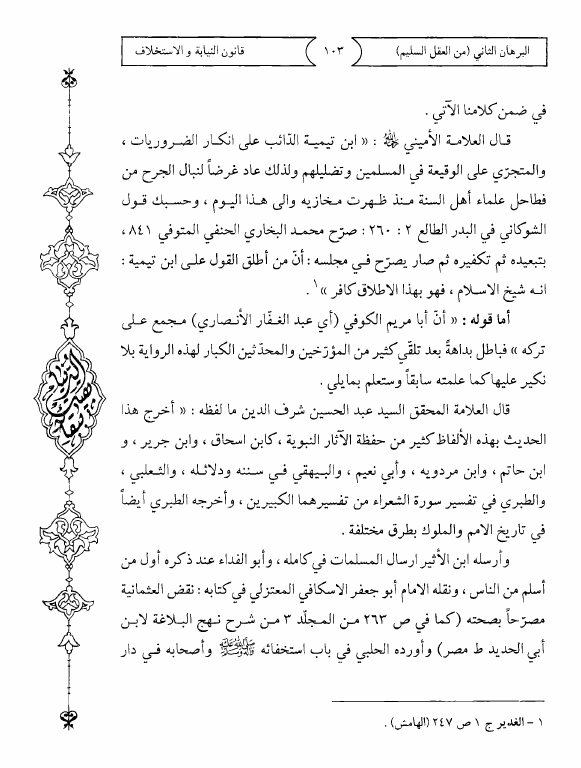 البرهان الثاني (من العقل السليم)
١٠٣
قانون النيابة و الاستخلاف
في ضمن كلامنا الآتي .
قـال العلامـة الأميني ﷫ : « ابن تيميـة الدّائب على انكـار الضـروريات ،
والمتجرّي على الوقيعة في المسلمين وتضليلهم ولذلك عاد غرضاً لنبال الجرح من
فطاحل علماء أهل السنة منـذ ظهـرت مخازيه والى هـذا اليوم ، وحسبـك قـول
الشوكاني في البدر الطالع ٢ : ٢٦٠ : صرّح محمـد البخاري الحنفي المتوفي ٨٤١ ،
بتبعيده ثم تكفيره ثم صار يصرّح في مجلسه : أنّ من أطلق القول علـى ابن تيمية :
انـه شيخ الاسـلام ، فهو بهذا الاطلاق كافر »١ .
أما قوله : « أنّ أبا مريم الكوفي (أي عبد الغفّار الأنصاري) مـجمع علـى
تركه » فباطل بداهةً بعد تلقّي كثير من المؤرّخين والمحدّثين الكبار لهذه الرواية بلا
نكير عليها كما علمته سابقاً وستعلم بمايلي .
قال العلامة المحقق السيد عبد الحسين شرف الدين ما لفظه : « أخرج هذا
الحديث بهذه الألفاظ كثير من حفظة الآثار النبوية ، كابن اسحاق ، وابن جرير ، و
ابن حاتم ، وابن مردويه ، وأبي نعيم ، والبيهقي فـي سـننه ودلائـله ، والثـعلبي ،
والطبري في تفسير سورة الشعراء من تفسيرهما الكبيرين ، وأخرجه الطبري أيضاً
في تاريخ الامم والملوك بطرق مختلفة .
وأرسله ابن الأثير ارسال المسلمات في كامله ، وأبو الفداء عند ذكره أول من
أسلم من الناس ، ونقله الامام أبو جعفر الاسكافي المعتزلي في كتابه : نقض العثمانية
مصرّحاً بصحته (كما في ص ٢٦٣ مـن المجلّد ٣ مـن شـرح نهـج البـلاغة لابـن
أبي الحديد ط مصر) وأورده الحلبي في باب استخفائه ﷺ وأصحابه فـي دار
١ - الغدير ج ١ ص ٢٤٧ (الهامش) .